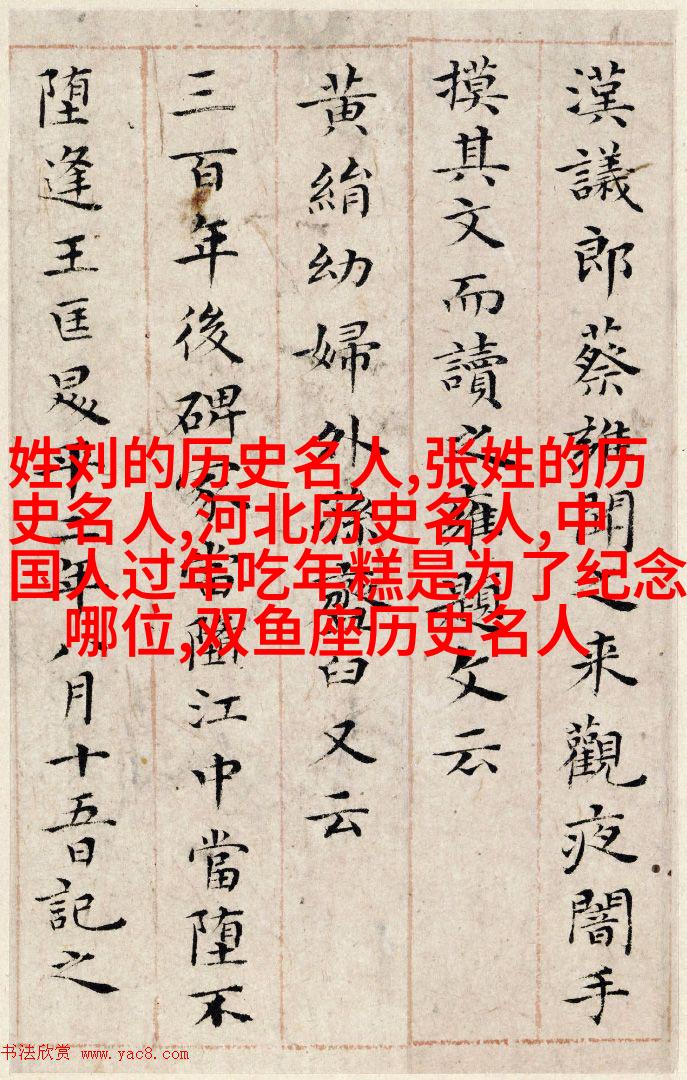 漢議郎蔡雍聞之来觀夜闇手
摸其文而讀之雍題文云
黃絹幼婦外孫臼又云
三百年後碑冢當堕江中當堕不
堕逢王匡昇平二年八月十五日記之
姓刘的历史名人,张姓的历
史名人,河北历史名人,中
国人过年吃年糕是为了纪念
哪位,双鱼座历史名人
书法欣赏 www.yac8.com